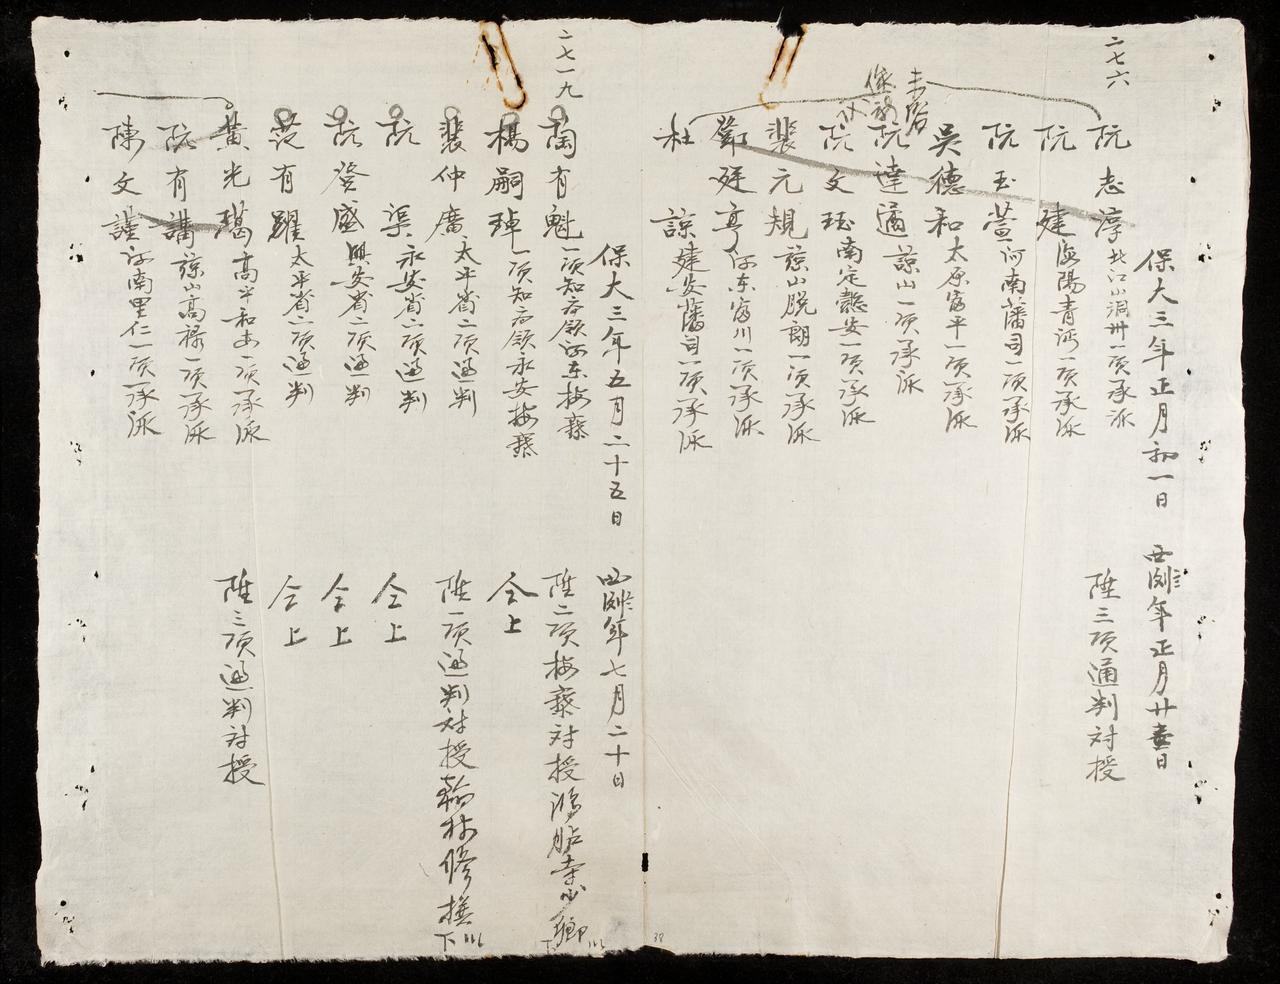 二七六
保大三年正月初一日 西例年正月廿壹日
阮志淳 北江山洞州一項承派 陞三項通判对授
阮建 海陽青沔一項承派
阮玉萱 河南藩司一項承派
吳德和 太原富平一項承派
阮達 諒山一項承派
阮文珪 南定懿安一項承派
裴元規 諒山脫朗一項承派
鄧廷亨 河东富川一項承派
杜諒 建安藩司一項承派
二七一九
保大三年五月二十五日 西例年七月二十日
陶有魁 一項知府領河东按察 陞二項按察对授鴻胪寺少卿
楊嗣琸 一項知府領永安按察 仝上
裴仲廣 太平省二項通判 陞一項通判对授翰林修撰
阮渠 永安省二項通判 仝上
阮登盛 興安省二項通判 仝上
范有耀 太平省二項通判 仝上
黃光 高平和安一項承派 陞三項通判对授
阮有講 諒山高禄一項承派
陳文謹 河南里仁一項承派
38